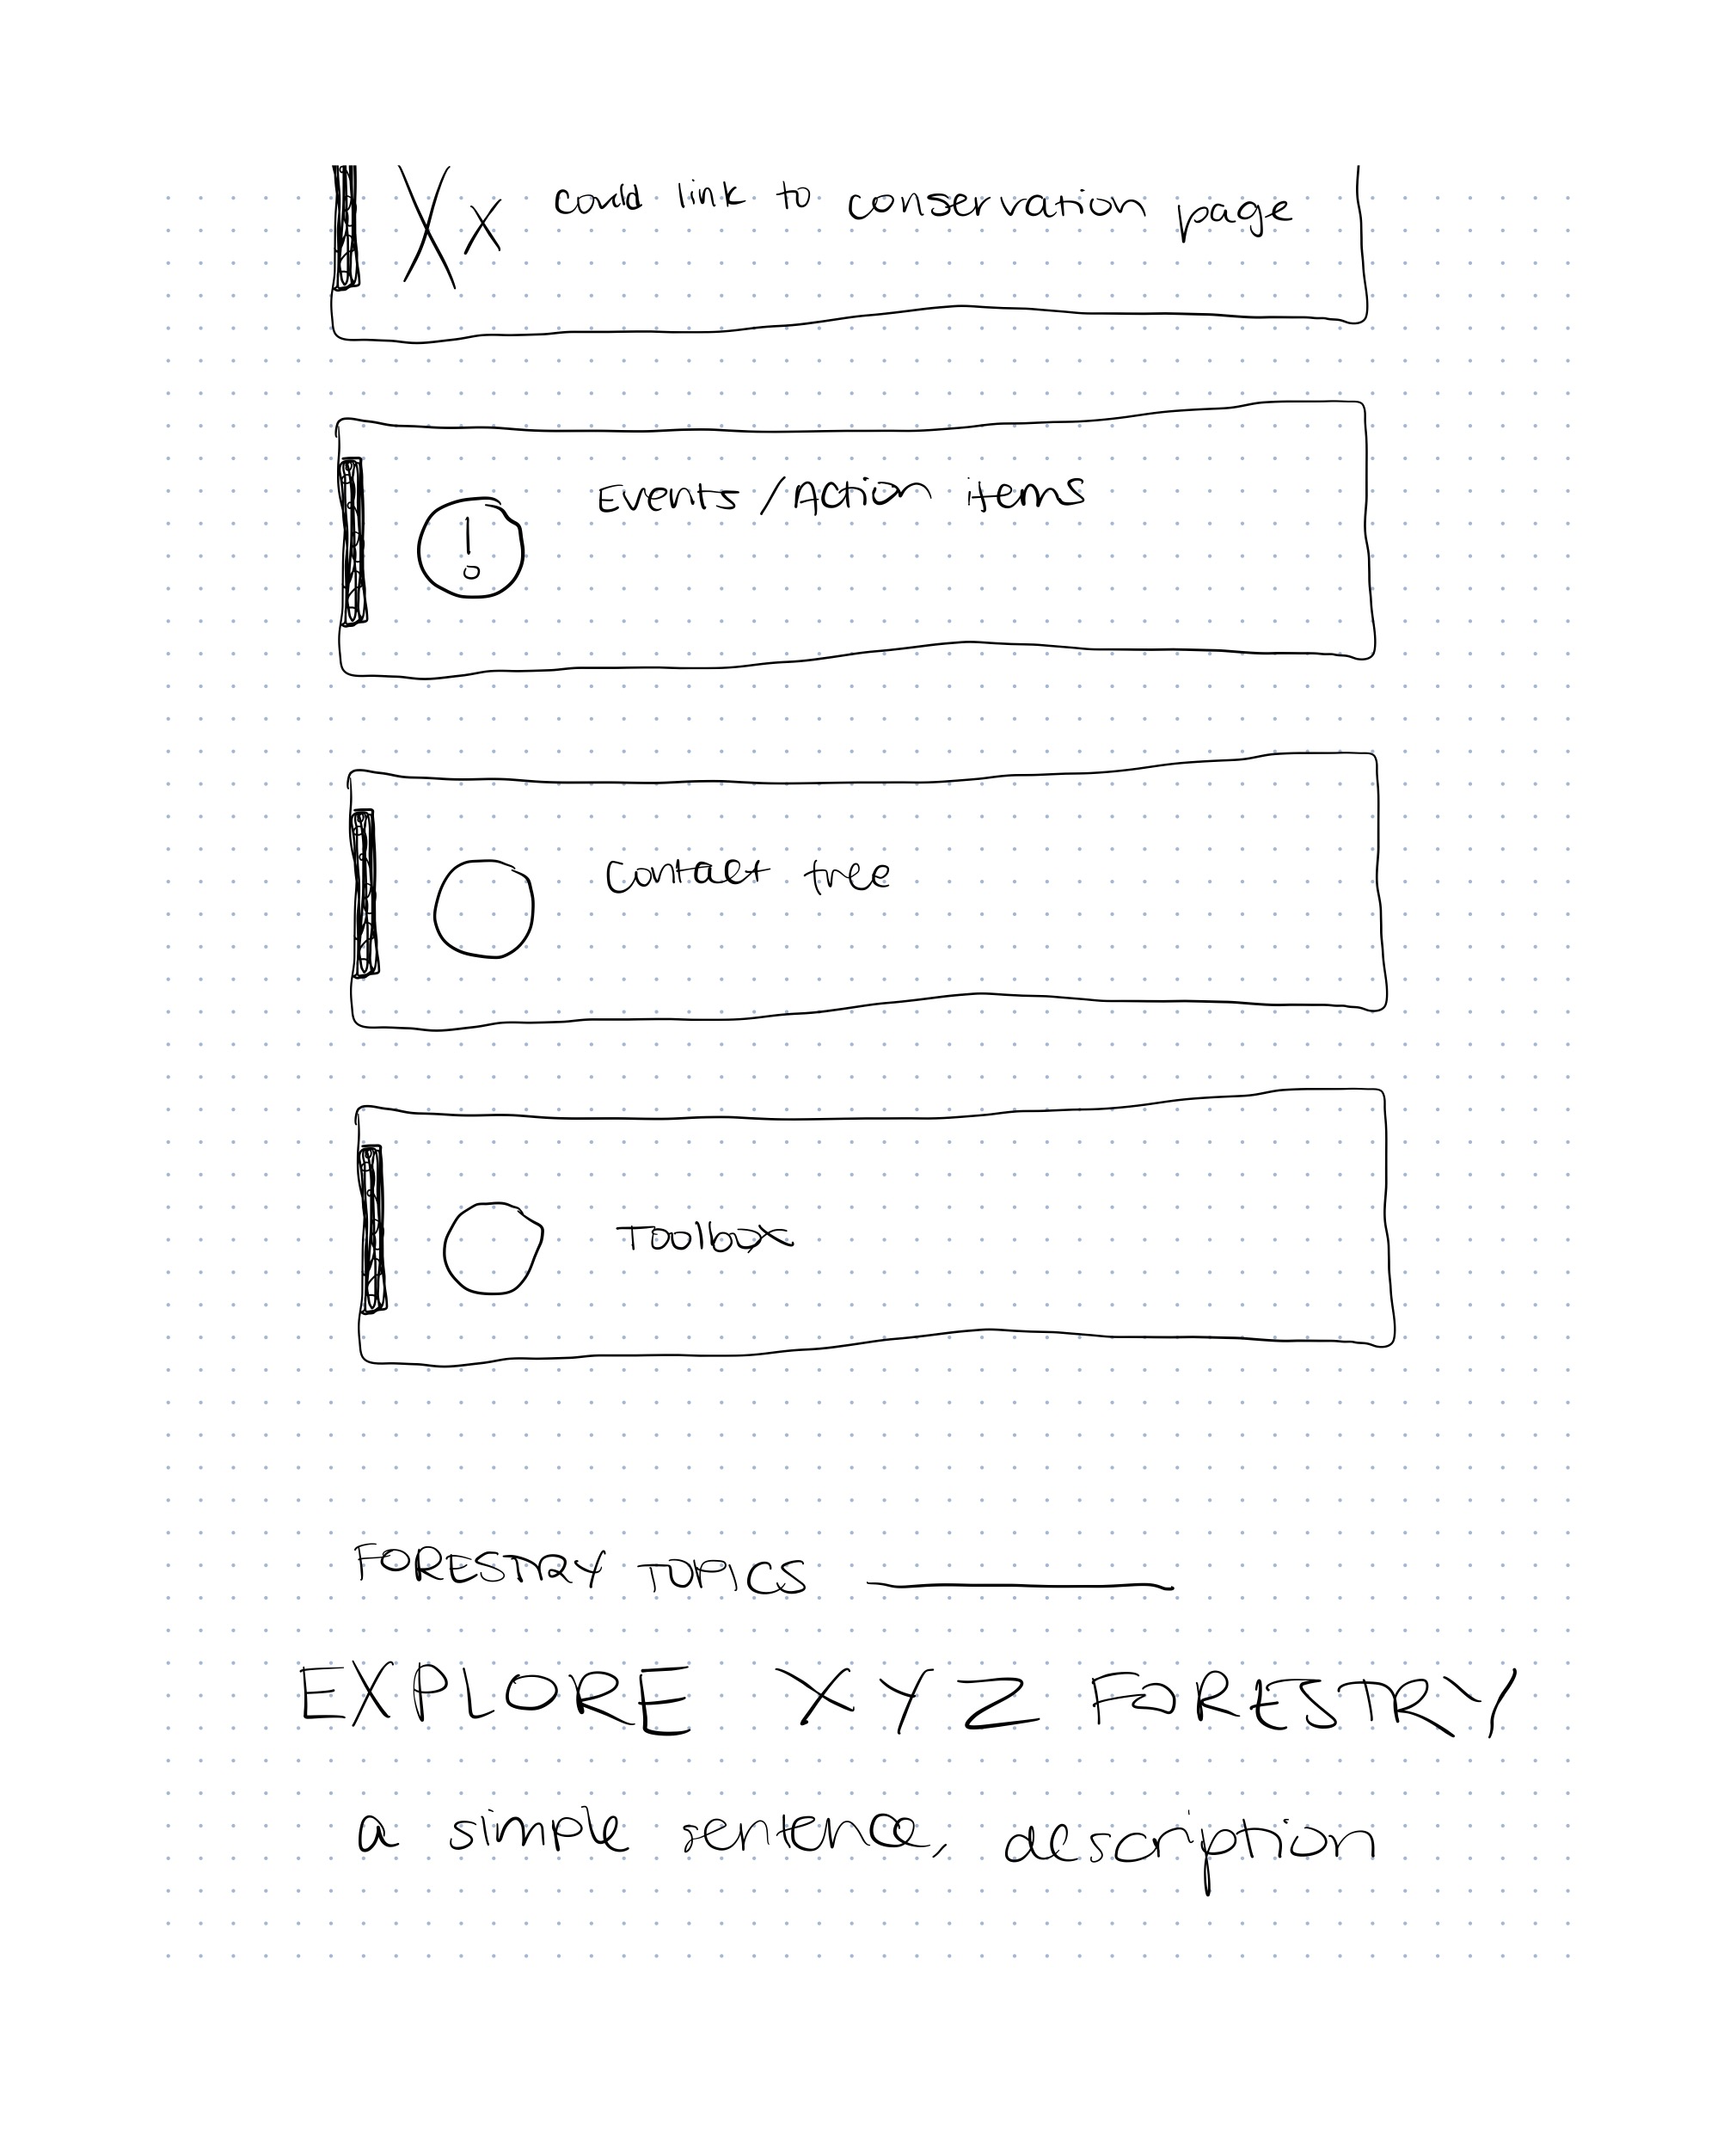 Xx could link to conservation page
Events/Action items
!
Contact tree
Toolbox
FORESTRY TOPICS
EXPLORE XYZ FORESTRY
a simple sentence, description